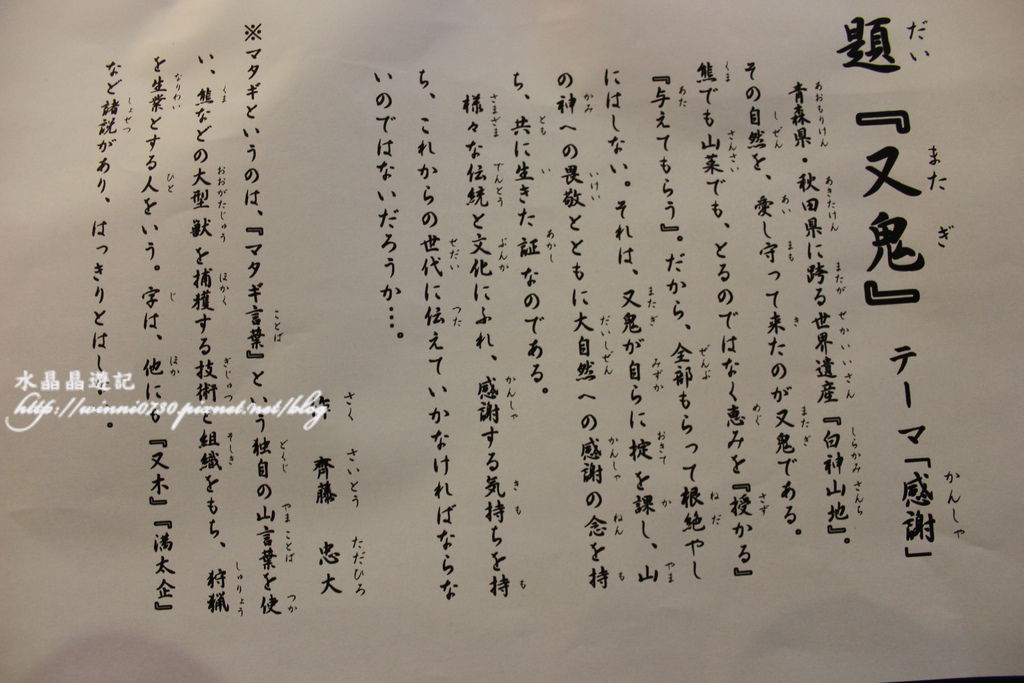 題『又鬼』 テーマ「感謝」
青森県・秋田県に跨る世界遺産『白神山地』。
その自然を、愛し守って来たのが又鬼である。
熊でも山菜でも、とるのではなく恵みを『授かる』
『与えてもらう』。だから、全部もらって根絶やし
にはしない。それは、又鬼が自らに掟を課し、山
の神への畏敬とともに大自然への感謝の念を持
ち、共に生きた証なのである。
様々な伝統と文化にふれ、感謝する気持ちを持
ち、これからの世代に伝えていかなければならな
いのではないだろうか…。
齊藤 忠大
※マタギというのは、『マタギ言葉』という独自の山言葉を使
い、熊などの大型獣を捕獲する技術と組織をもち、狩猟
を生業とする人をいう。字は、他にも『又木』『満太企』
など諸説があり、はっきりとはし
水晶晶遊記
http://winni0730.pixnet.net/blog